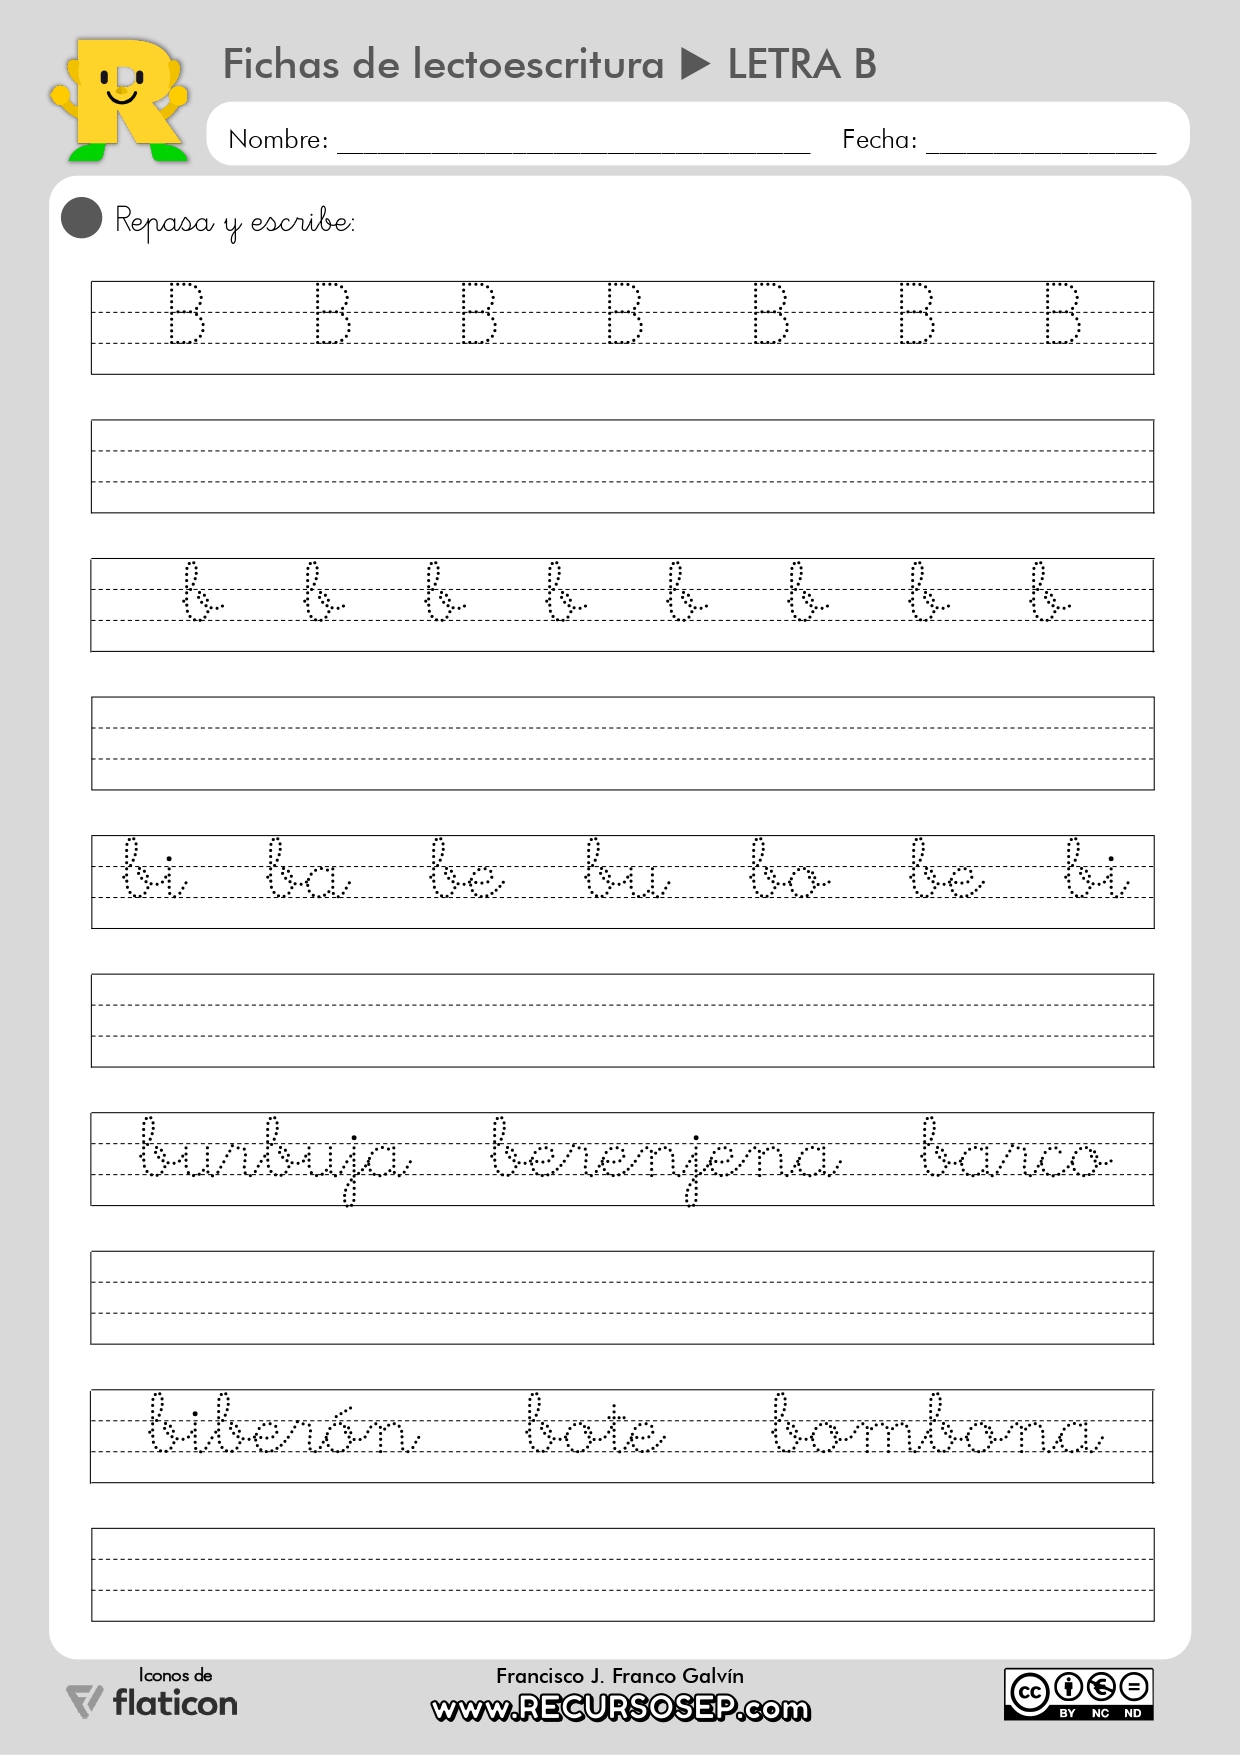 Fichas de lectoescritura ▶ LETRA B
Nombre: ________________ Fecha: ________________
Repasa y escribe:
B B B B B B B
b b b b b b b b
bi ba be bu bo be bi
bunbuja berenjena banco
biberón bote bombona
Iconos de
flaticon
Francisco J. Franco Galvín
www.RECURSOSEP.com
cc BY NC ND